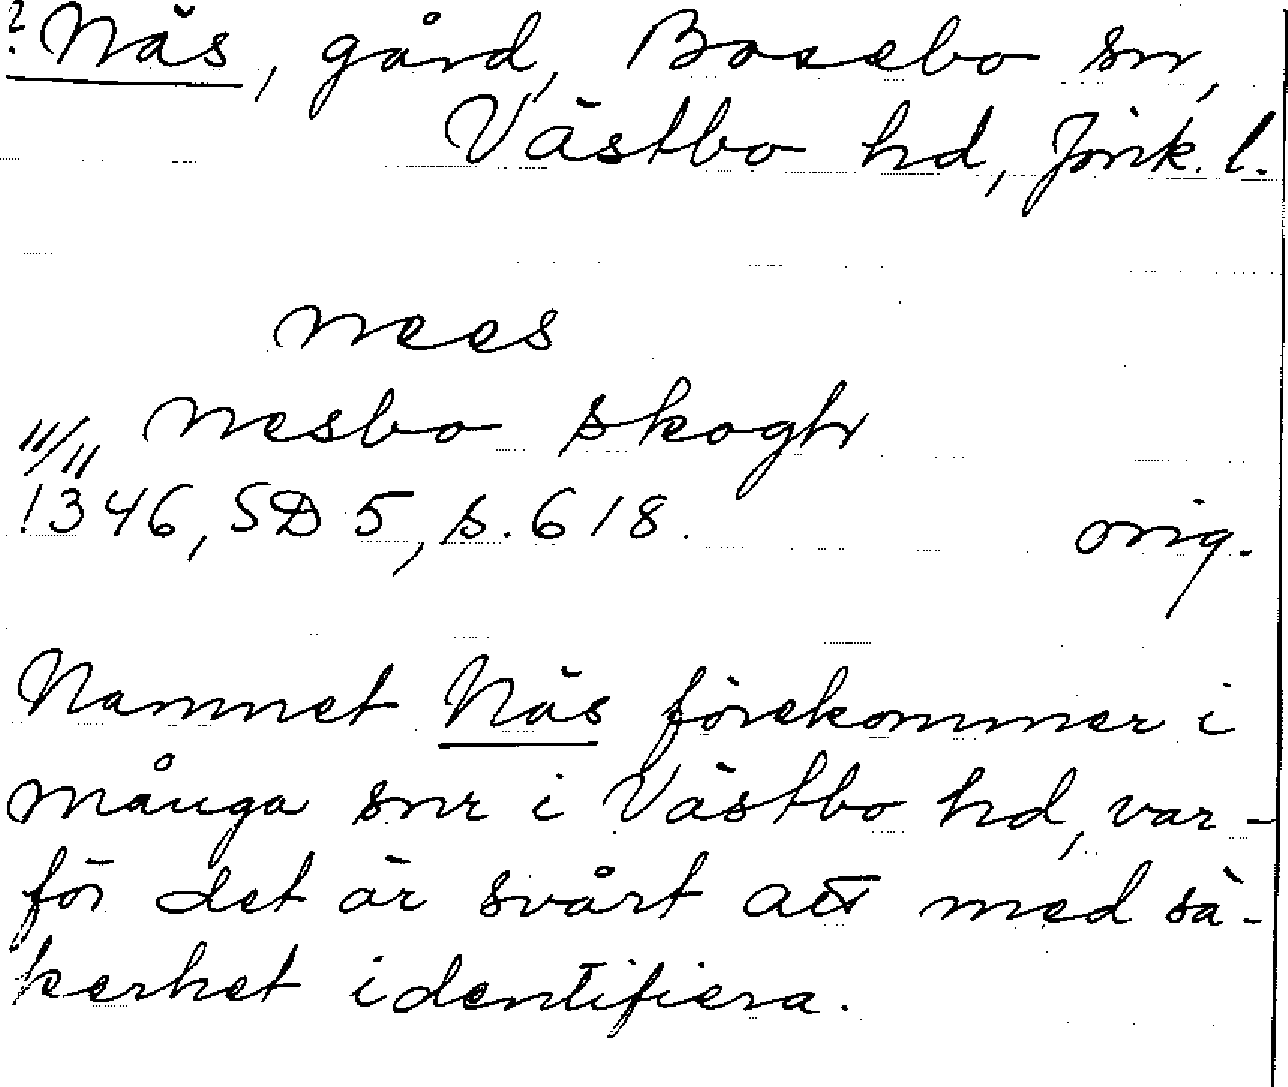 ? Näs, gård, Bosebo sn,
Västbo hd, Jönk. l.
nees
nesbo skogh
11/11
1346, SD 5, s. 618. orig.
Namnet Näs förekommer i
många snr i Västbo hd, var-
för det är svårt att med sä-
kerhet identifiera.